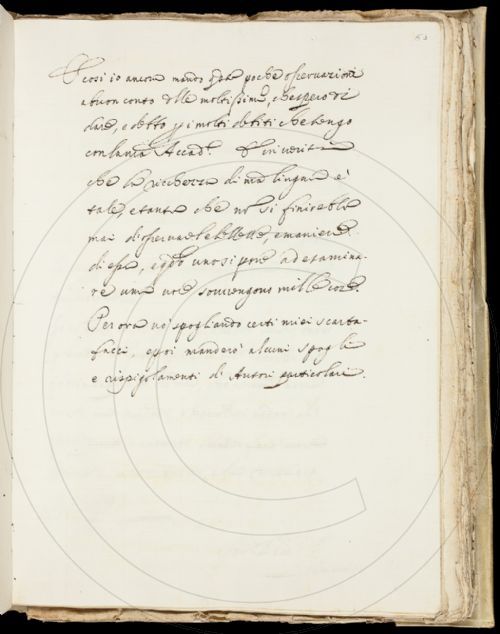 E così io ancora mando q.ste poche osservazioni
a buon conto delle moltissime, che spero di
dare, e detto p i molti debiti che tengo
con la mia Accad.a E in verità
che la ricchezza di ma lingua è
tale, e tanta che non si finirebbe
mai d'osservare le bellezze, e maniere
di essa, e q.do uno si pone ad esamina-
re una voce, sovvengono mille cose.
Per ora vo spogliando certi miei scarta-
facci, e poi manderò alcuni spogli
e rispigolamenti di Autori particolari.